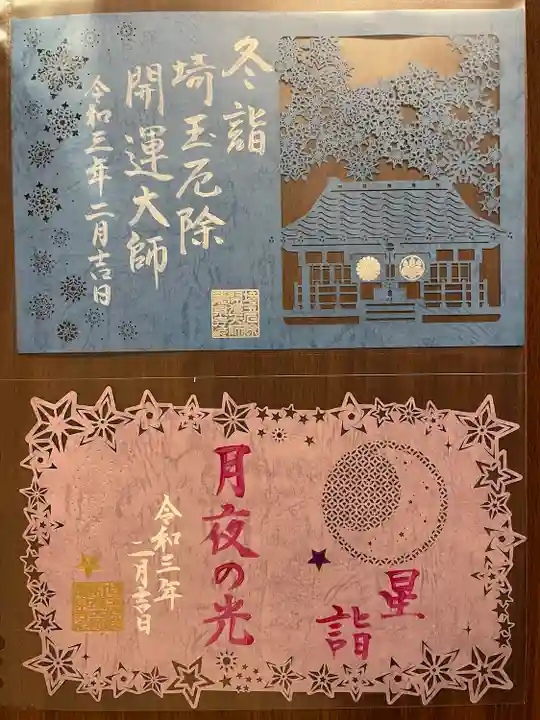 冬詣
埼玉厄除
開運大師
令和三年二月吉日
星詣
月夜の光
令和三年
二月吉日